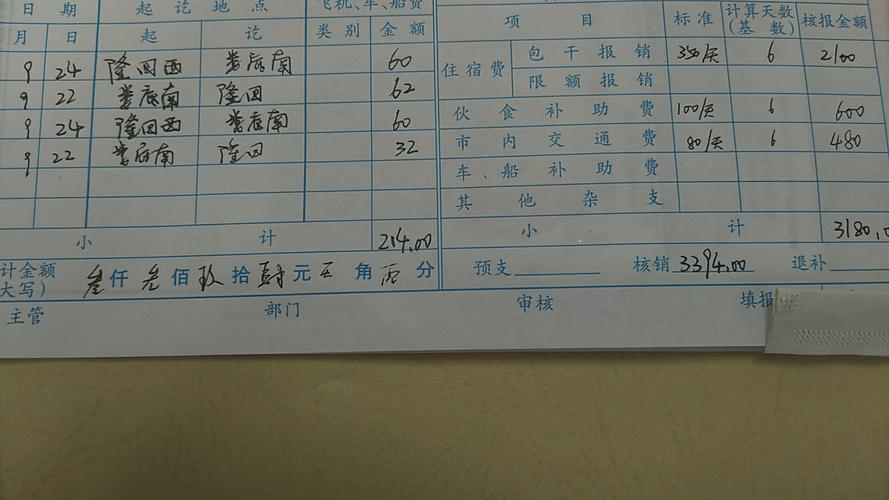 日 期 起 讫 地 点 飞机、车、船费
月 日 起 讫 类 别 金 额
9 24 隆回西 娄底南 60
9 22 娄底南 隆回 62
9 24 隆回西 娄底南 60
9 22 娄底南 隆回 32
小 计 214.00
项 目 标 准 计算天数(基 数) 核报金额
住宿费 包 干 报 销 350/天 6 2100
限 额 报 销
伙 食 补 助 费 100/天 6 600
市 内 交 通 费 80/天 6 480
车、船 补 助 费
其 他 杂 支
小 计 3180.0
计金额
大写) 叁 仟 叁 佰 玖 拾 肆 元 角 分
预支 核销 3394.00 退补
主管 部门 审核 填报